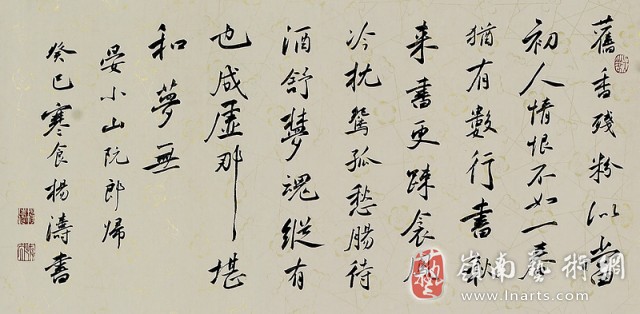 舊香殘粉似當
初人情恨不如一春
猶有數行書秋
来書更疎衾鳳
冷枕鴛孤愁腸待
酒舒夢魂縱有
也成虛那堪
和夢無
晏小山阮郎歸
癸巳寒食楊濤書
嶺南藝術網
www.lnarts.com